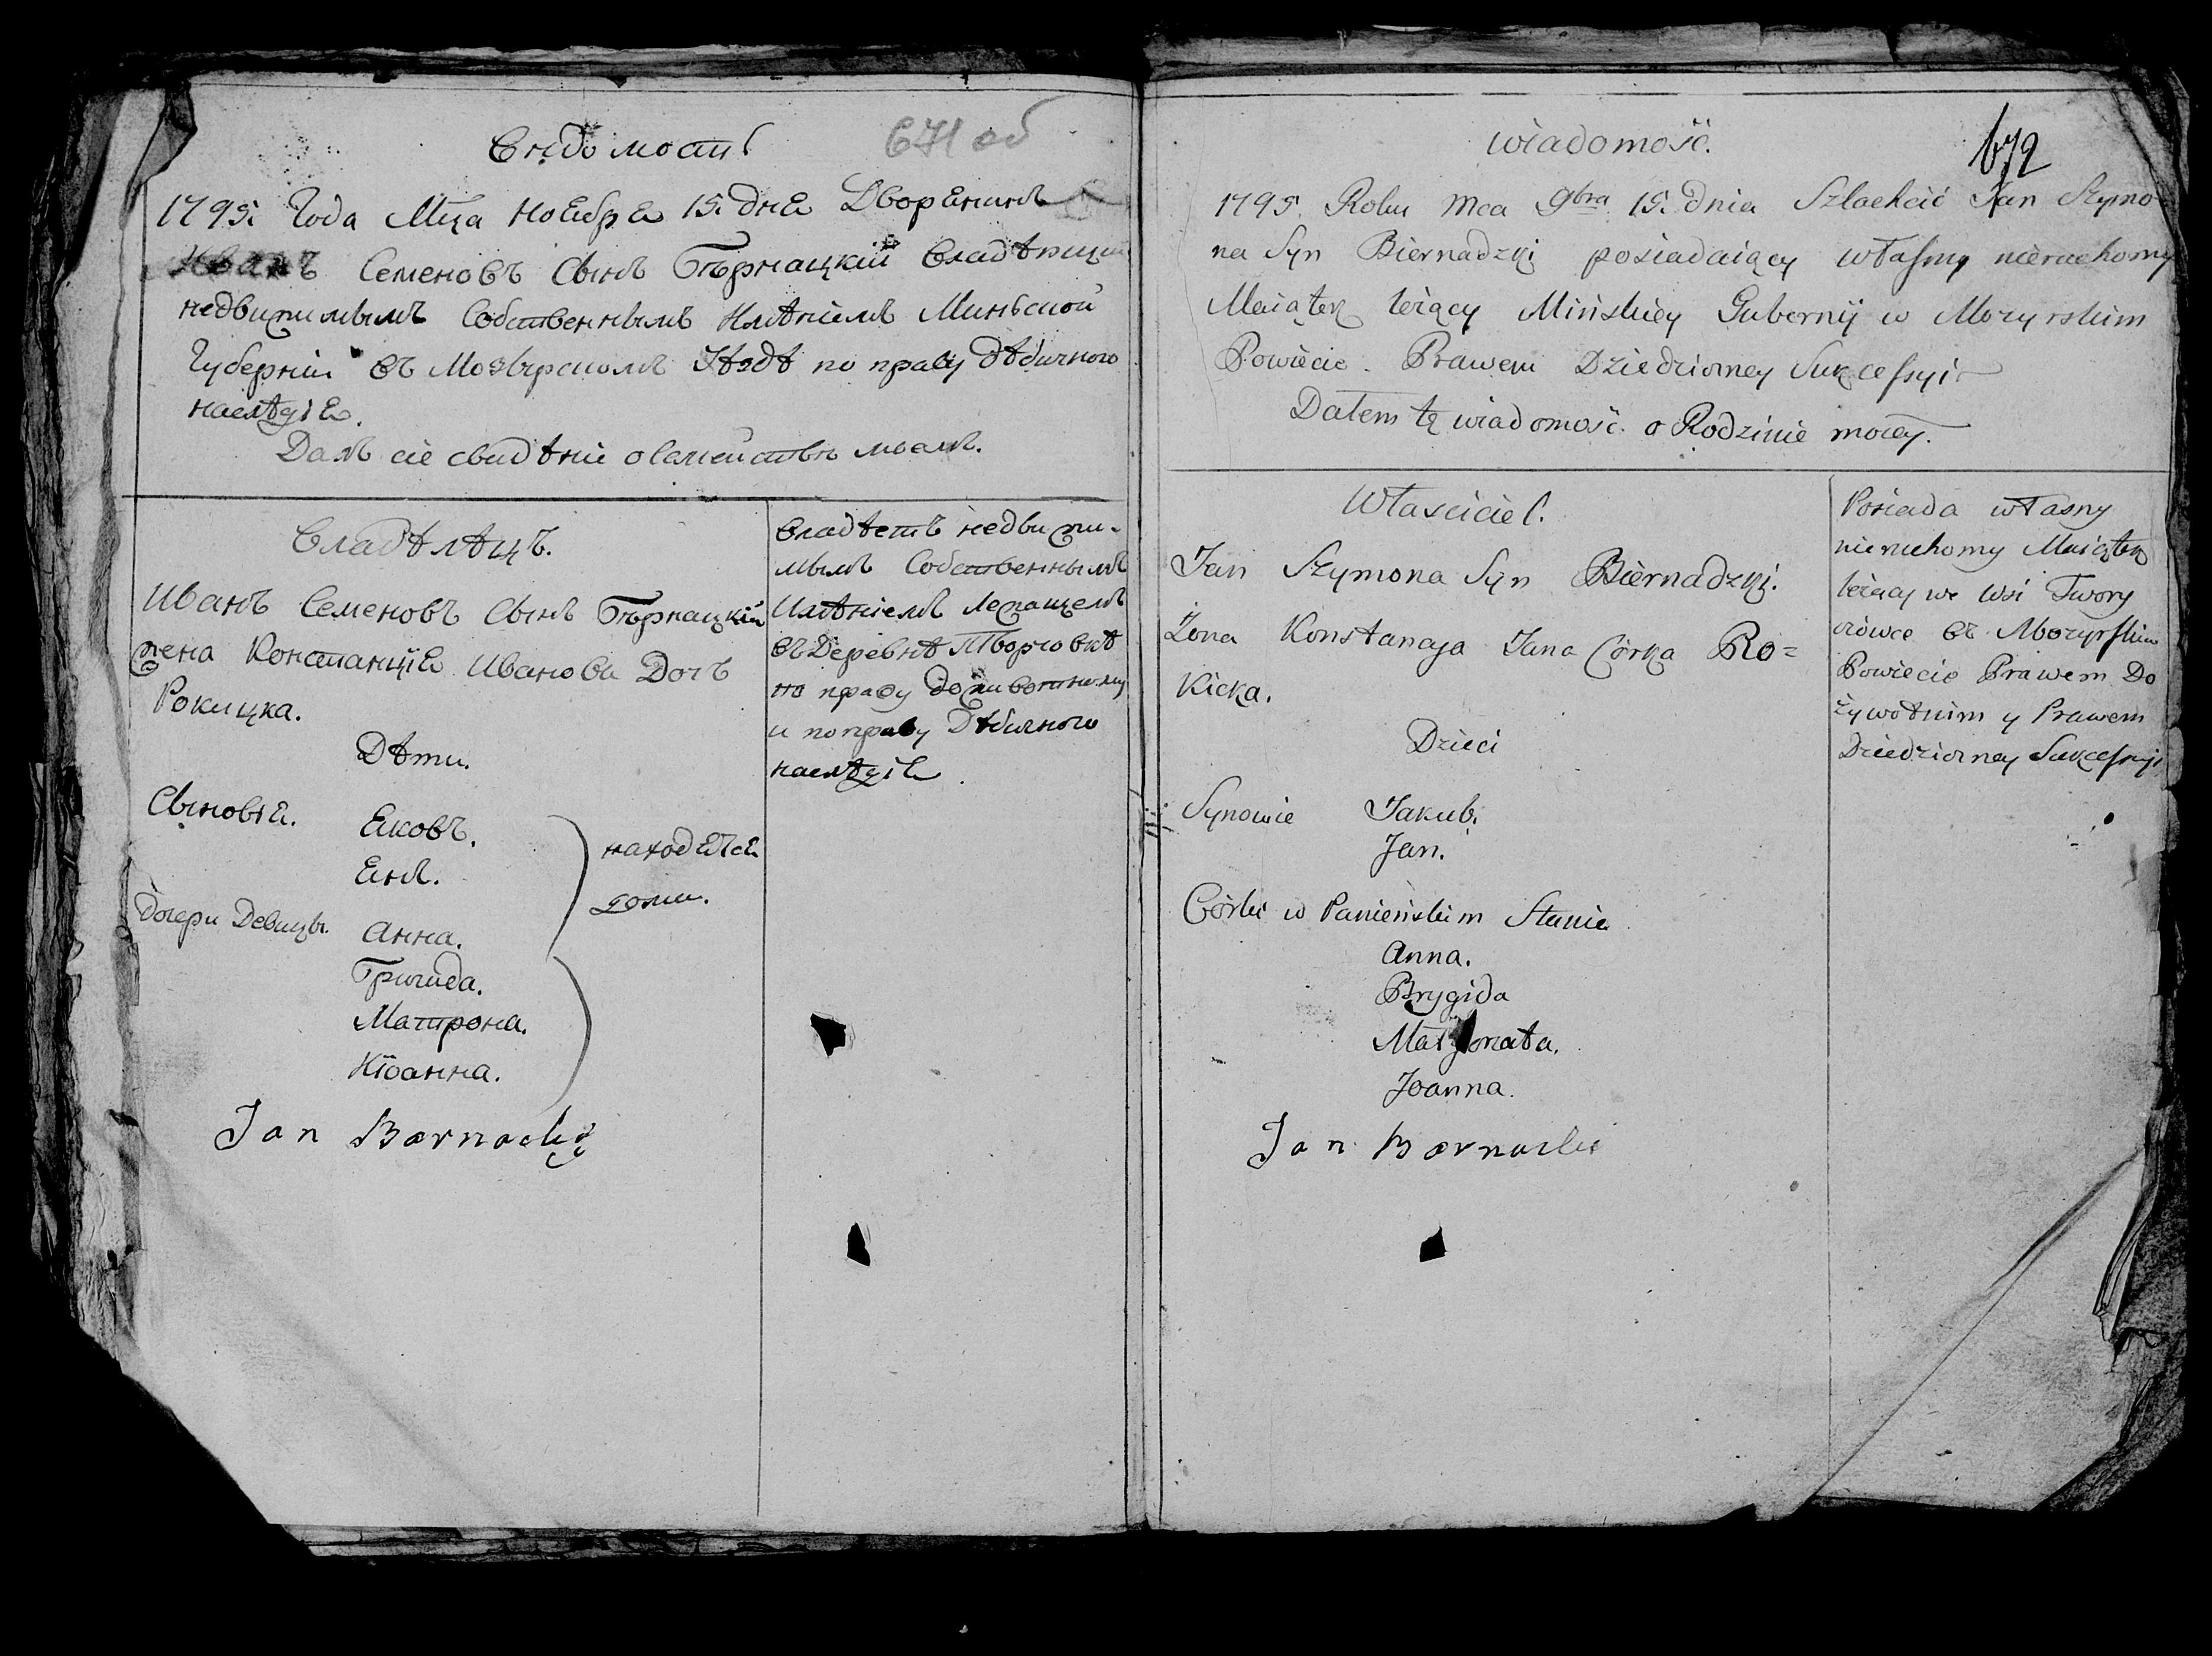 Вѣдомость
671 об
1795. Года Мца Ноебрѣ 15. днѣ Дворѣнинъ
Иванъ Семеновъ Сынъ Бѣрнацкій Владѣющи
недвижимымъ Собственнымъ Имѣніемъ Минской
Губерніи въ Мозырскомъ Уѣздѣ по праву дѣдичного
наслѣдіѣ.
Далъ сіе свидѣніе о семействѣ моемъ.
Владѣлѣцъ.
Иванъ Семеновъ Сынъ Бѣрнацкій
жена Констанціѣ Иванова Дочъ
Рокицка.
Дѣти.
Сыновіѣ. Ѣковъ.
Ѣнъ.
находѣтсѣ
дома.
Дочери Девицы. Анна.
Бригида.
Матрона.
Юанна.
Jan Barnacky
Владѣетъ недвижи-
мымъ Собственнымъ
Имѣніемъ Лежащемъ
въ Деревнѣ
по праву доживотному
и по праву Дѣдичного
наслѣдіѣ.
Wiadomość.
672
1795. Roku Mca 9bra 15. dnia Szlachcic Jan Szymo-
na Syn Biernadzki posiadaiący własny nieruchomy
Maiątek leżący Mińskiey Gubernij w Mozyrskim
Powiecie. Prawem Dziedziczney Sukcessyi
Dałem tę wiadomość o Rodzinie moiey.
Własciciel.
Jan Szymona Syn Biernadzki.
Żona Konstancya Jana Córka Ro=
kicka.
Dzieci
Synowie Jakub.
Jan.
Córki w Panieńskim Stanie
Anna.
Brygida
Małgorzata.
Joanna.
Jan Barnacki
Posiada własny
nieruchomy Maiątek
leżący we Wsi Twory
czówce въ Mozyrskim
Powiecie Prawem Do
żywotnim y Prawem
Dziedziczney Sukcessyi